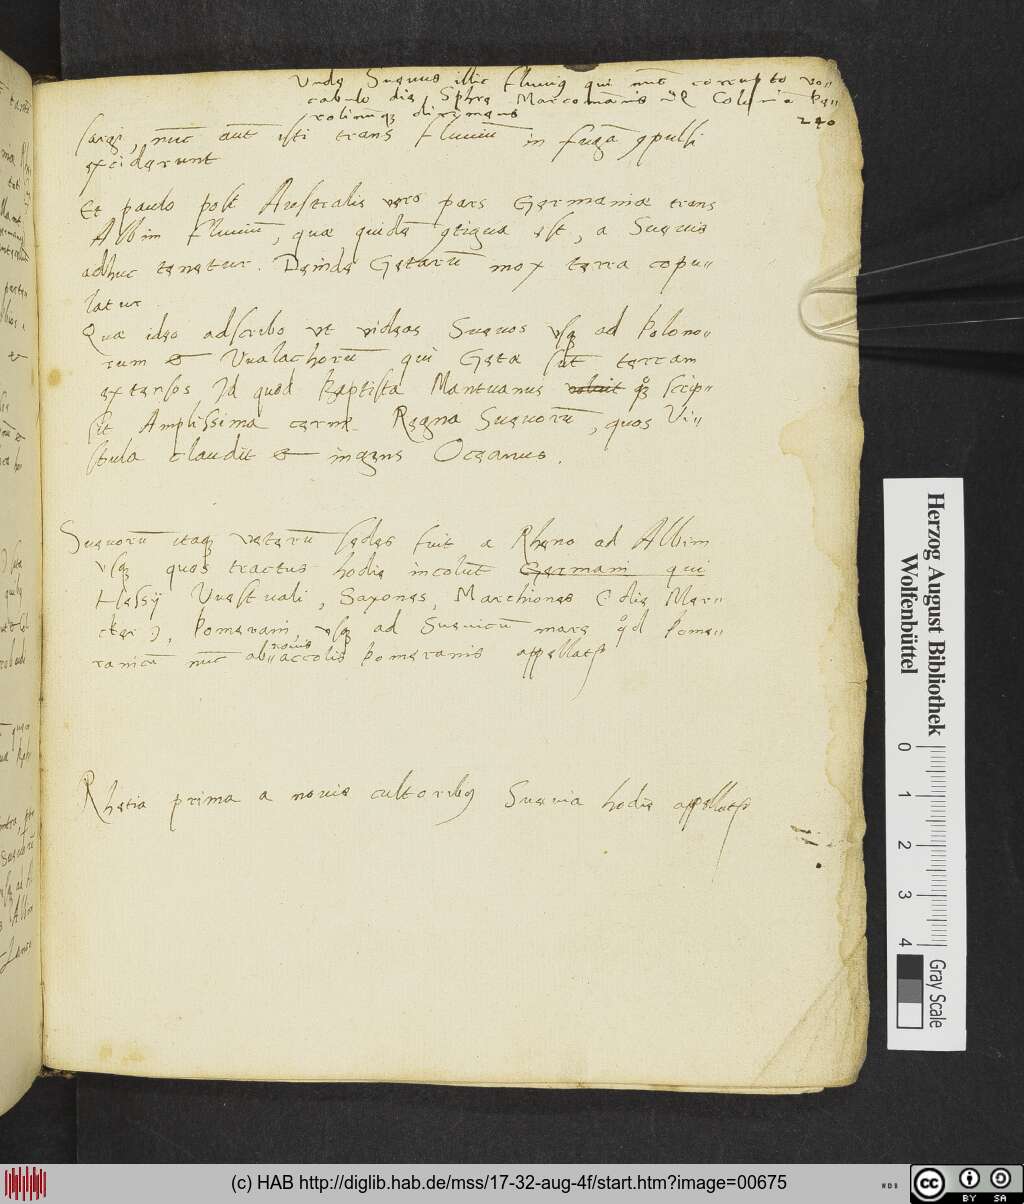 Vnde Sueuus illic fluuiꝰ qui nūc corrupto vo⸗
cabulo die Sphre Marcomānis
rolinumqꝫ dirimens
240
nunc aūt isti trans fluuiū in fugā ꝯpulsi
exciderunt
Et paulo post Australis vero pars Germaniæ trans
Albim fluuiū, quæ quidē ꝯtigua est, a Sueuis
adhuc tenetur. Deinde Getarū mox terra copu⸗
latur
Quæ ideo adscribo vt videas Sueuos vsqꝫ ad Polono⸗
rum & Vualachorū qui Getæ sūt terram
extensos, Id quod Baptista Mantuanus scrip⸗
sit Amplissima cerne Regna Sueuorū, quos Vi⸗
stula claudit & ingens Oceanus.
Sueuorū itaqꝫ veterū sedes fuit a Rheno ad Albim
vsqꝫ quos tractus hodie incolūt Germani qui
Hessij Vuestuali, Saxones, Marchiones (die Mer⸗
cker), Pomerani, vsqꝫ ad Sueuicū mare qd Pome⸗
ranicū nūc ab nouis accolis Pomeranis appellatur
Rhetia prima a nouis cultoribꝰ Sueuia hodie appellatur
Herzog August Bibliothek
Wolfenbüttel
0 1 2 3 4
Gray Scale
(c) HAB http://diglib.hab.de/mss/17-32-aug-4f/start.htm?image=00675
cc BY SA